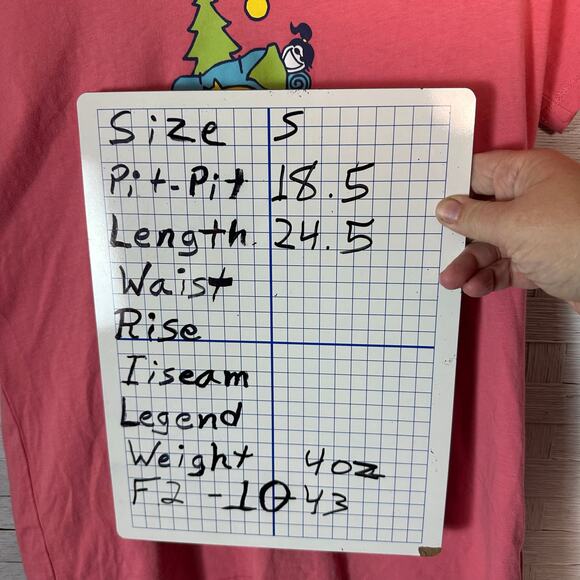 Size S
Pit-Pit 18.5
Length. 24.5
Waist
Rise
Iiseam
Legend
Weight 4oz
F2 -10-43